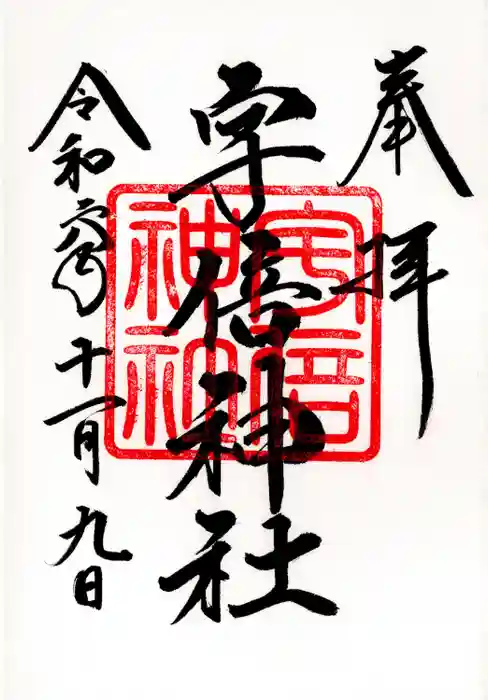 奉拝
宇倍神社
令和六年十一月九日
宇倍
神社